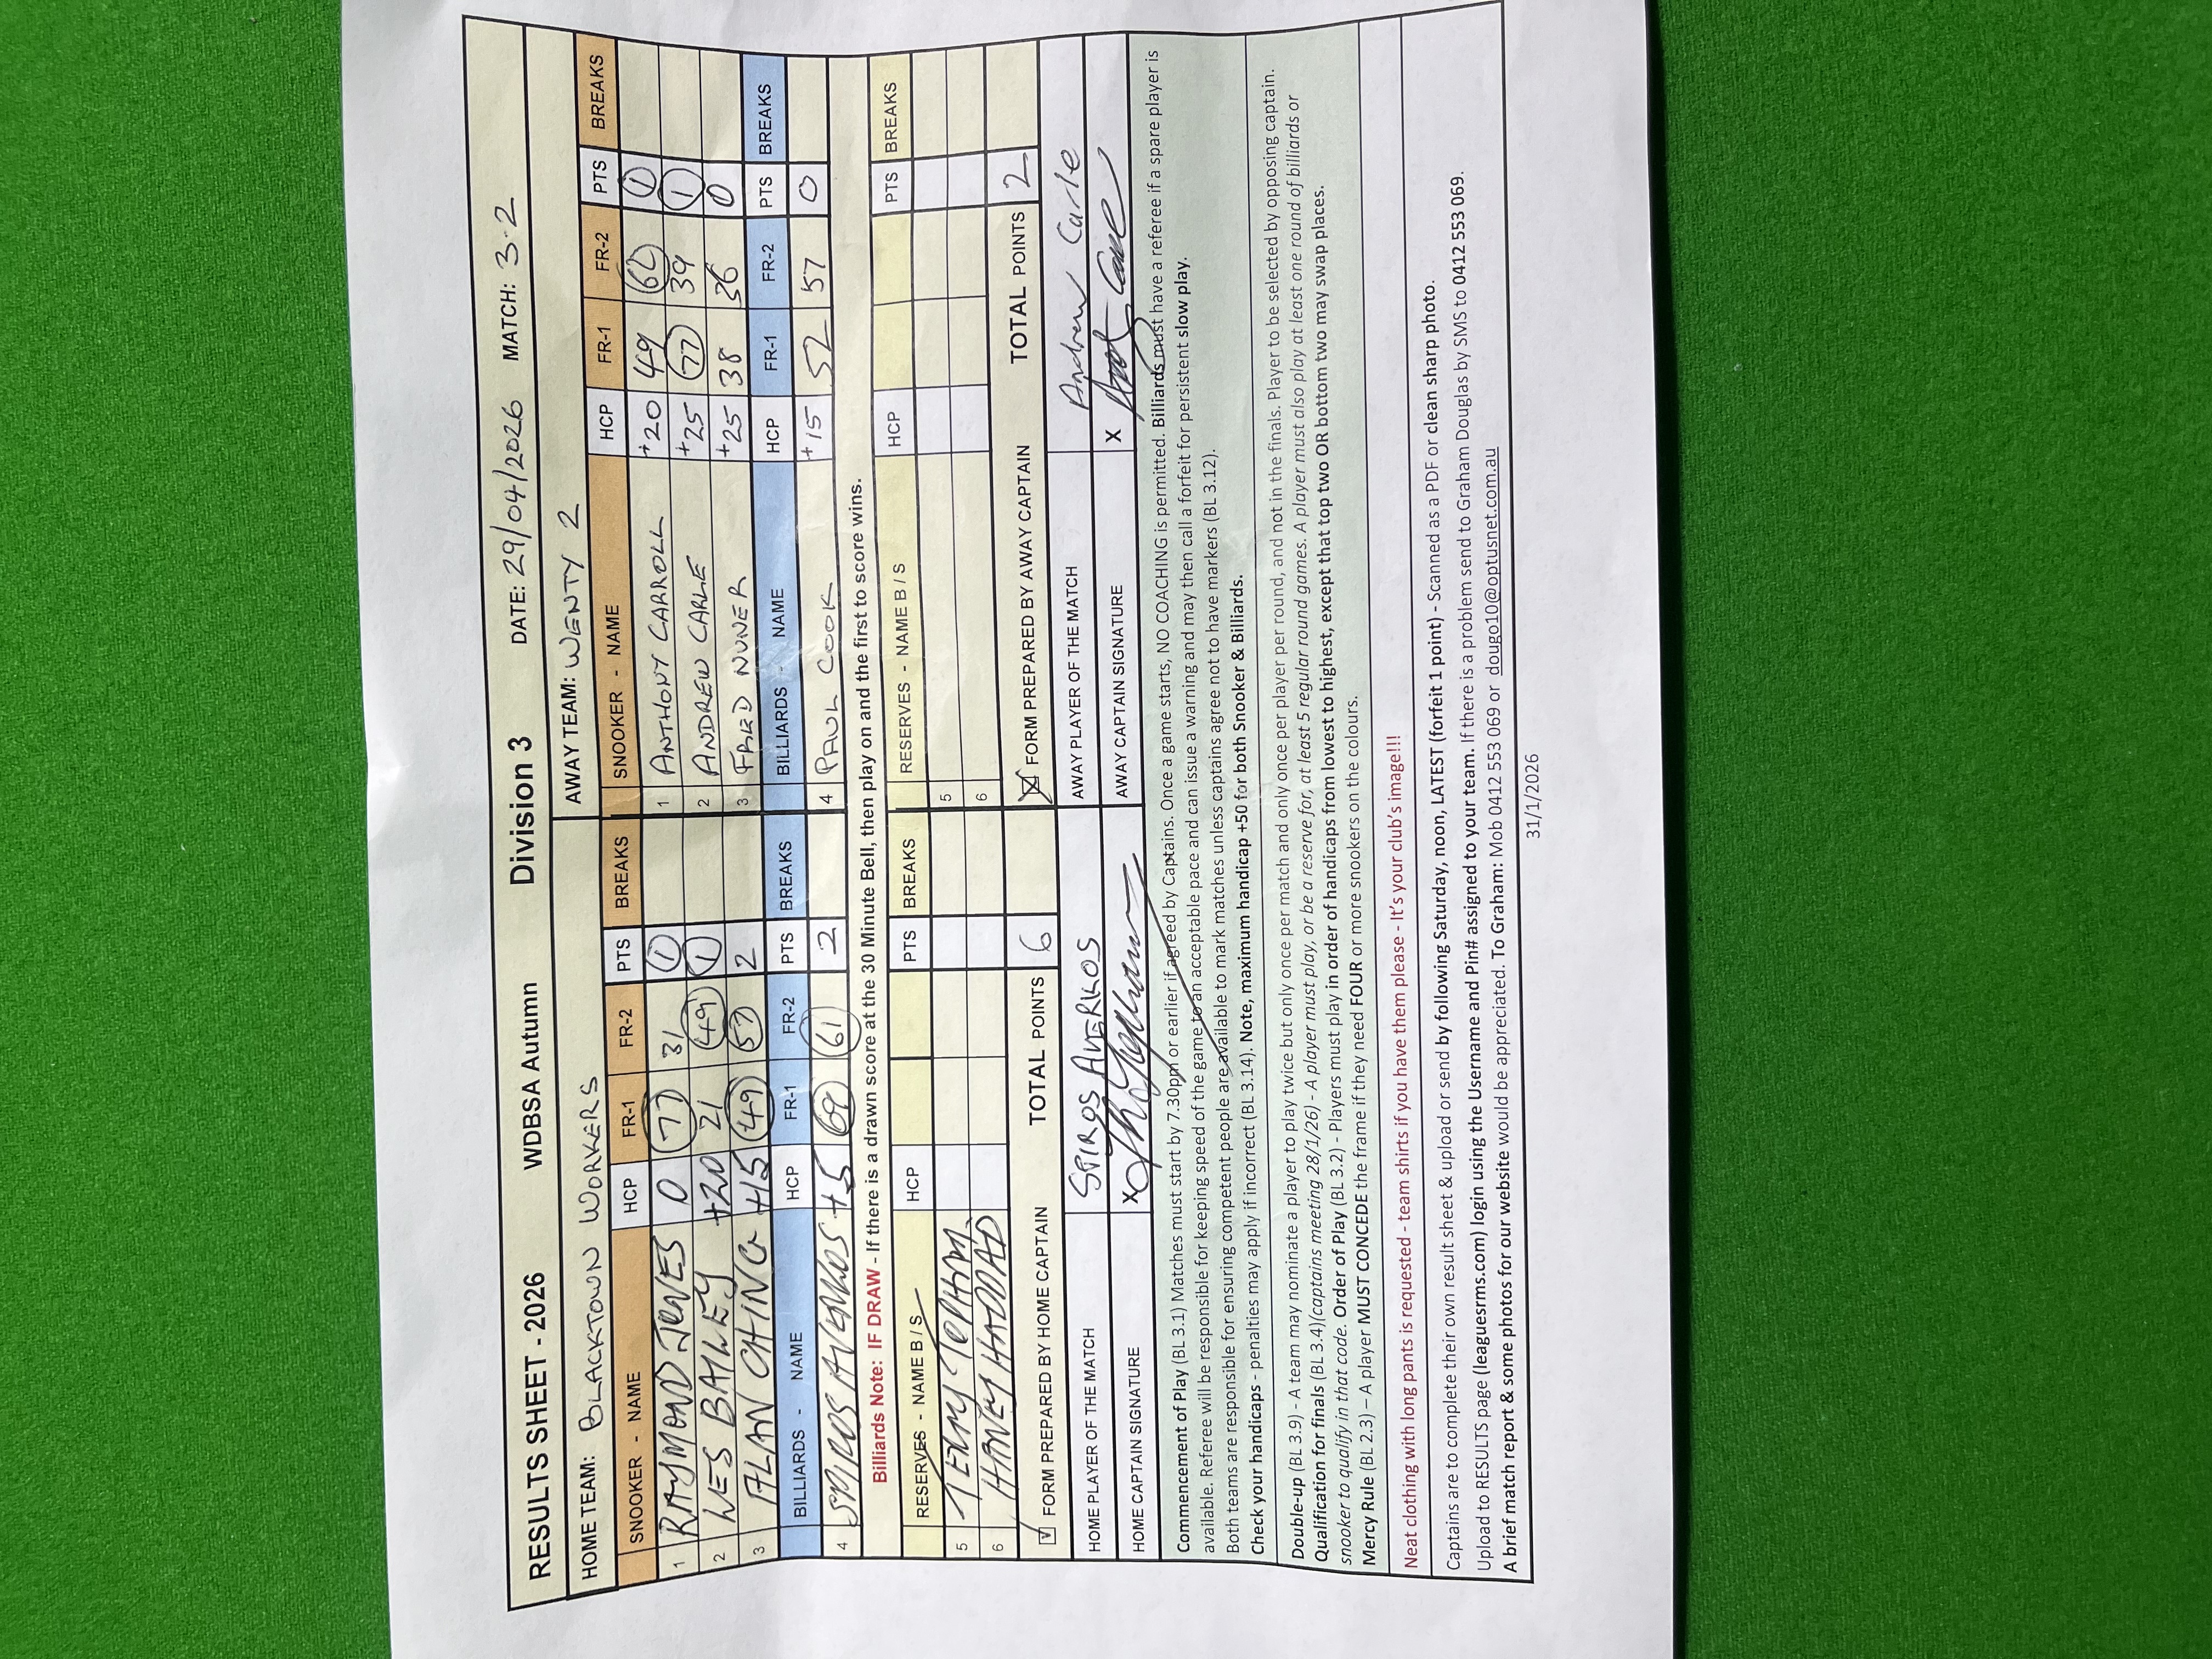 RESULTS SHEET - 2026 WDBSA Autumn Division 3 DATE: 29/04/2026 MATCH: 3.2
HOME TEAM: BLACKTOWN WORKERS AWAY TEAM: WENTY 2
SNOOKER - NAME HCP FR-1 FR-2 PTS BREAKS SNOOKER - NAME HCP FR-1 FR-2 PTS BREAKS
1 RAYMOND JONES 0 77 31 1 1 ANTHONY CARROLL +20 49 62 1
2 LES BAILEY +20 21 49 1 2 ANDREW CARLE +25 77 39 1
3 ALAN CHING +15 49 57 2 3 FRED NUNER +25 38 36 0
BILLIARDS - NAME HCP FR-1 FR-2 PTS BREAKS BILLIARDS - NAME HCP FR-1 FR-2 PTS BREAKS
4 SPIROS AVERKOS +5 69 61 2 4 PAUL COOK +15 52 57 0
Billiards Note: IF DRAW - If there is a drawn score at the 30 Minute Bell, then play on and the first to score wins.
RESERVES - NAME B / S HCP PTS BREAKS RESERVES - NAME B / S HCP PTS BREAKS
5 TERRY TOPHAM 5
6 HANEY HADDAD 6
FORM PREPARED BY HOME CAPTAIN TOTAL POINTS 6 FORM PREPARED BY AWAY CAPTAIN TOTAL POINTS 2
HOME PLAYER OF THE MATCH SPIROS AVERKOS AWAY PLAYER OF THE MATCH Andrew Carle
HOME CAPTAIN SIGNATURE X AWAY CAPTAIN SIGNATURE X
Commencement of Play (BL 3.1) Matches must start by 7.30pm or earlier if agreed by Captains. Once a game starts, NO COACHING is permitted. Billiards must have a referee if a spare player is
available. Referee will be responsible for keeping speed of the game to an acceptable pace and can issue a warning and may then call a forfeit for persistent slow play.
Both teams are responsible for ensuring competent people are available to mark matches unless captains agree not to have markers (BL 3.12).
Check your handicaps - penalties may apply if incorrect (BL 3.14). Note, maximum handicap +50 for both Snooker & Billiards.
Double-up (BL 3.9) - A team may nominate a player to play twice but only once per match and only once per player per round, and not in the finals. Player to be selected by opposing captain.
Qualification for finals (BL 3.4)(captains meeting 28/1/26) - A player must play, or be a reserve for, at least 5 regular round games. A player must also play at least one round of billiards or
snooker to qualify in that code. Order of Play (BL 3.2) - Players must play in order of handicaps from lowest to highest, except that top two OR bottom two may swap places.
Mercy Rule (BL 2.3) – A player MUST CONCEDE the frame if they need FOUR or more snookers on the colours.
Neat clothing with long pants is requested - team shirts if you have them please - It's your club's image!!!
Captains are to complete their own result sheet & upload or send by following Saturday, noon, LATEST (forfeit 1 point) - Scanned as a PDF or clean sharp photo.
Upload to RESULTS page (leaguesrms.com) login using the Username and Pin# assigned to your team. If there is a problem send to Graham Douglas by SMS to 0412 553 069.
A brief match report & some photos for our website would be appreciated. To Graham: Mob 0412 553 069 or dougo10@optusnet.com.au
31/1/2026